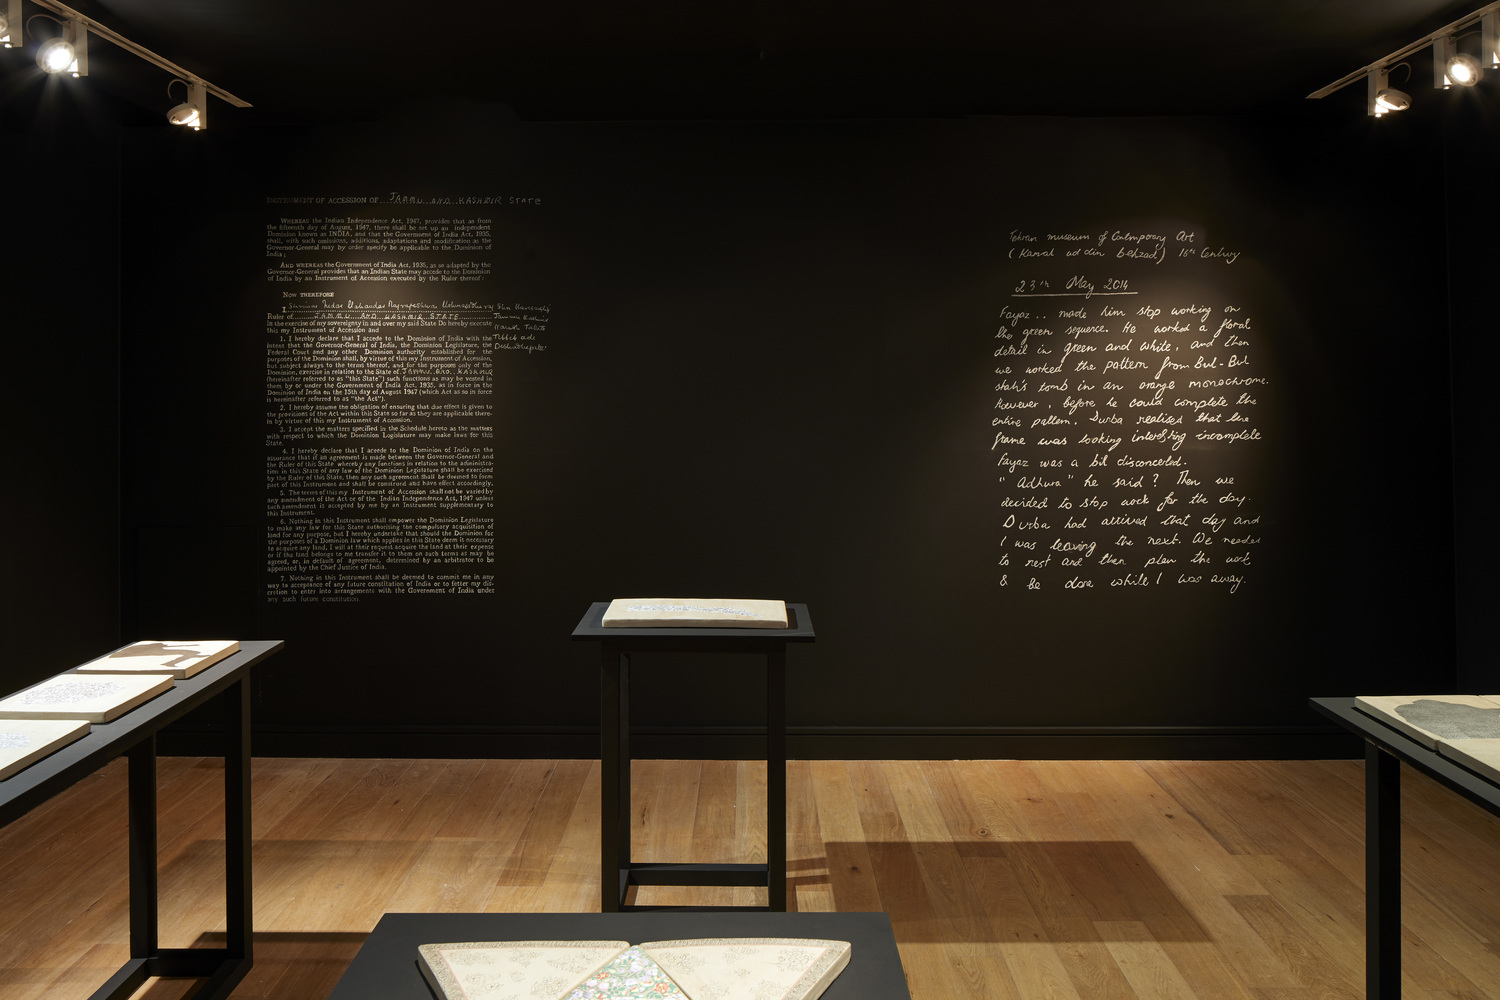 INSTRUMENT OF ACCESSION OF JAMMU AND KASHMIR STATE
WHEREAS the Indian Independence Act, 1947, provides that as from
the fifteenth day of August, 1947, there shall be set up an independent
Dominion known as INDIA, and that the Government of India Act, 1935,
shall, with such omissions, additions, adaptations and modifications as the
Governor-General may by order specify be applicable to the Dominion of
India;
AND WHEREAS the Government of India Act, 1935, as so adapted by the
Governor-General provides that an Indian State may accede to the Dominion
of India by an Instrument of Accession executed by the Ruler thereof:
NOW THEREFORE
I
Ruler of JAMMU AND KASHMIR STATE
in the exercise of my sovereignty in and over my said State Do hereby execute
this my Instrument of Accession and
1. I hereby declare that I accede to the Dominion of India with the
intent that the Governor-General of India, the Dominion Legislature, the
Federal Court and any other Dominion authority established for the
purposes of the Dominion shall, by virtue of this my Instrument of Accession,
but subject always to the terms thereof, and for the purposes only of the
Dominion, exercise in relation to the State of JAMMU AND KASHMIR
(hereinafter referred to as "this State") such functions as may be vested in
them by or under the Government of India Act, 1935, as in force in the
Dominion of India on the 15th day of August 1947 (which Act as so in force
is hereinafter referred to as "the Act").
2. I hereby assume the obligation of ensuring that due effect is given to
the provisions of the Act within this State so far as they are applicable there-
in by virtue of this my Instrument of Accession.
3. I accept the matters specified in the Schedule hereto as the matters
with respect to which the Dominion Legislature may make laws for this
State.
4. I hereby declare that I accede to the Dominion of India on the
assurance that if an agreement is made between the Governor-General and
the Ruler of this State whereby any functions in relation to the administra-
tion in this State of any law of the Dominion Legislature shall be exercised
by the Ruler of this State, then any such agreement shall be deemed to form
part of this Instrument and shall be construed and have effect accordingly.
5. The terms of this my Instrument of Accession shall not be varied by
any amendment of the Act or of the Indian Independence Act, 1947 unless
such amendment is accepted by me by an Instrument supplementary to
this Instrument.
6. Nothing in this Instrument shall empower the Dominion Legislature
to make any law for this State authorising the compulsory acquisition of
land for any purpose, but I hereby undertake that should the Dominion for
the purposes of a Dominion law which applies in this State deem it necessary
to acquire any land, I will at their request acquire the land at their expense
or if the land belongs to me transfer it to them on such terms as may be
agreed, or, in default of agreement, determined by an arbitrator to be
appointed by the Chief Justice of India.
7. Nothing in this Instrument shall be deemed to commit me in any
way to acceptance of any future constitution of India or to fetter my dis-
cretion to enter into arrangements with the Government of India under
any such future constitution.
Tehran museum of Contmporary Art
(Kamal ud din Behzad) 16th Century
23rd May 2014
Fayaz.. made him stop working on
the green sequence. He worked a floral
detail in green and white, and then
we worked the pattern from Bul-Bul
shah's tomb in an orange monochrome.
However, before he could complete the
entire pattern. Durba realised that the
frame was looking interesting incomplete
Fayaz was a bit disconcerted.
"Adhura" he said? Then we
decided to stop work for the day.
Durba had arrived that day and
I was leaving the next. We needed
to rest and then plan the work
& be done while I was away.